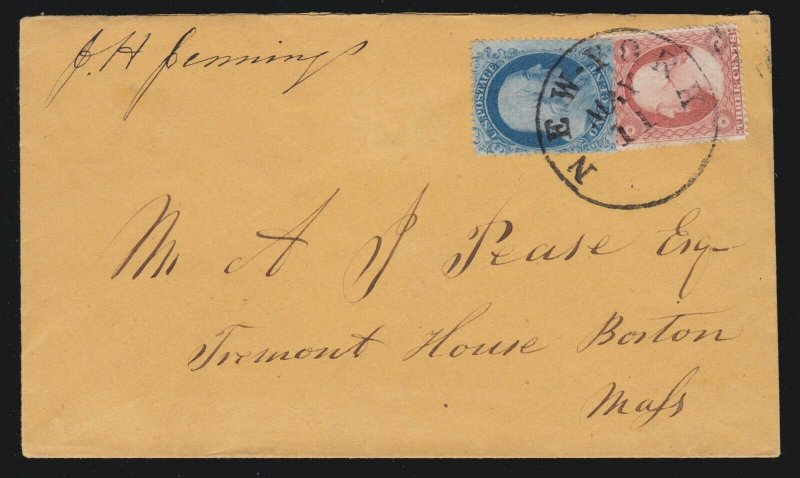 J. H Jennings
U.S. POSTAGE
ONE CENT
THREE CENTS
NEW-YORK
11
Mr A J Pease Esq
Tremont House Boston
Mass